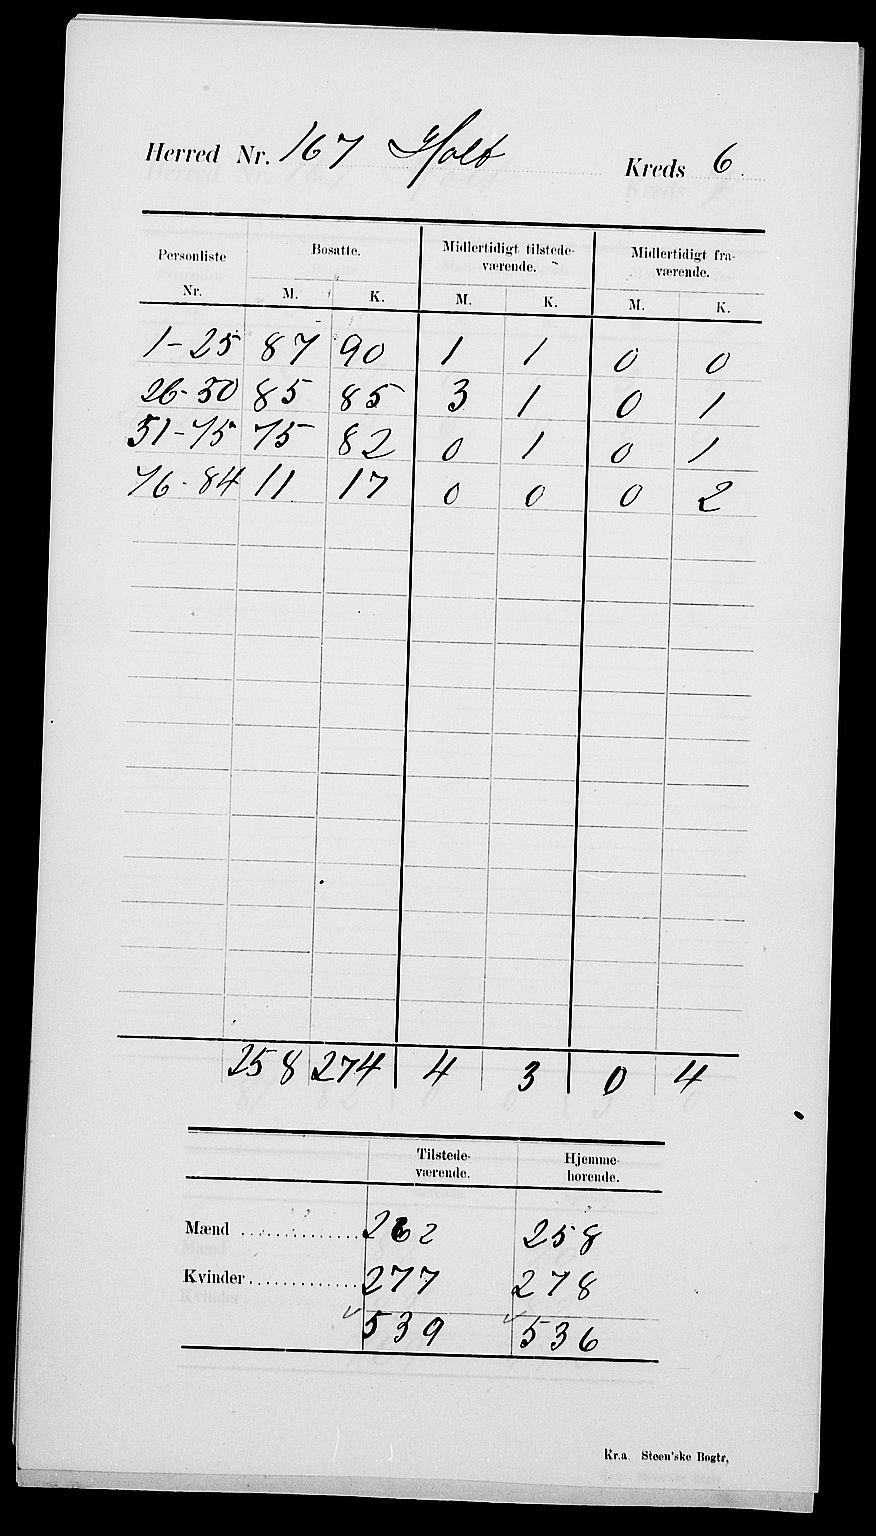 Herred Nr. 167 Holt Kreds 6.
Personliste Nr. Bosatte. Midlertidigt tilstede-værende. Midlertidigt fra-værende.
M. K. M. K. M. K.
1-25 87 90 1 1 0 0
26-50 85 85 3 1 0 1
51-75 75 82 0 1 0 1
76-84 11 17 0 0 0 2
258 274 4 3 0 4
Tilstede-værende. Hjemme-hørende.
Mænd 262 258
Kvinder 277 278
539 536
Kr.a Steen'ske Bogtr,